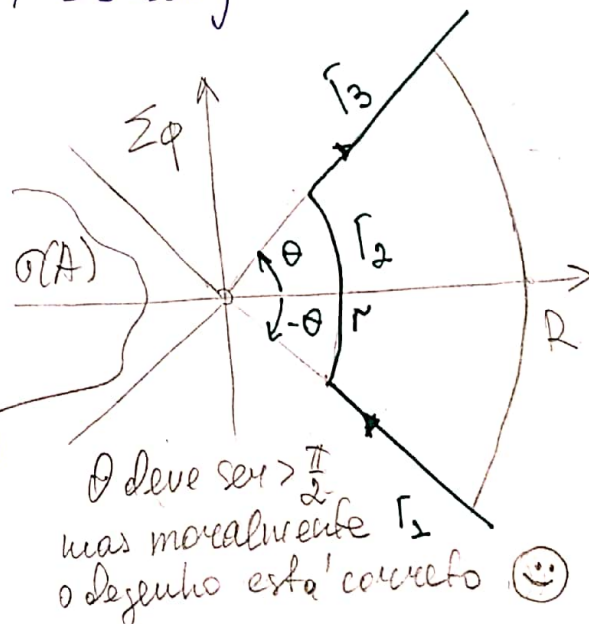 Σφ
Γ3
σ(A)
θ
Γ2
-θ
r
R
Γ1
θ deve ser > π/2
mas moralmente
o dezenho está correto